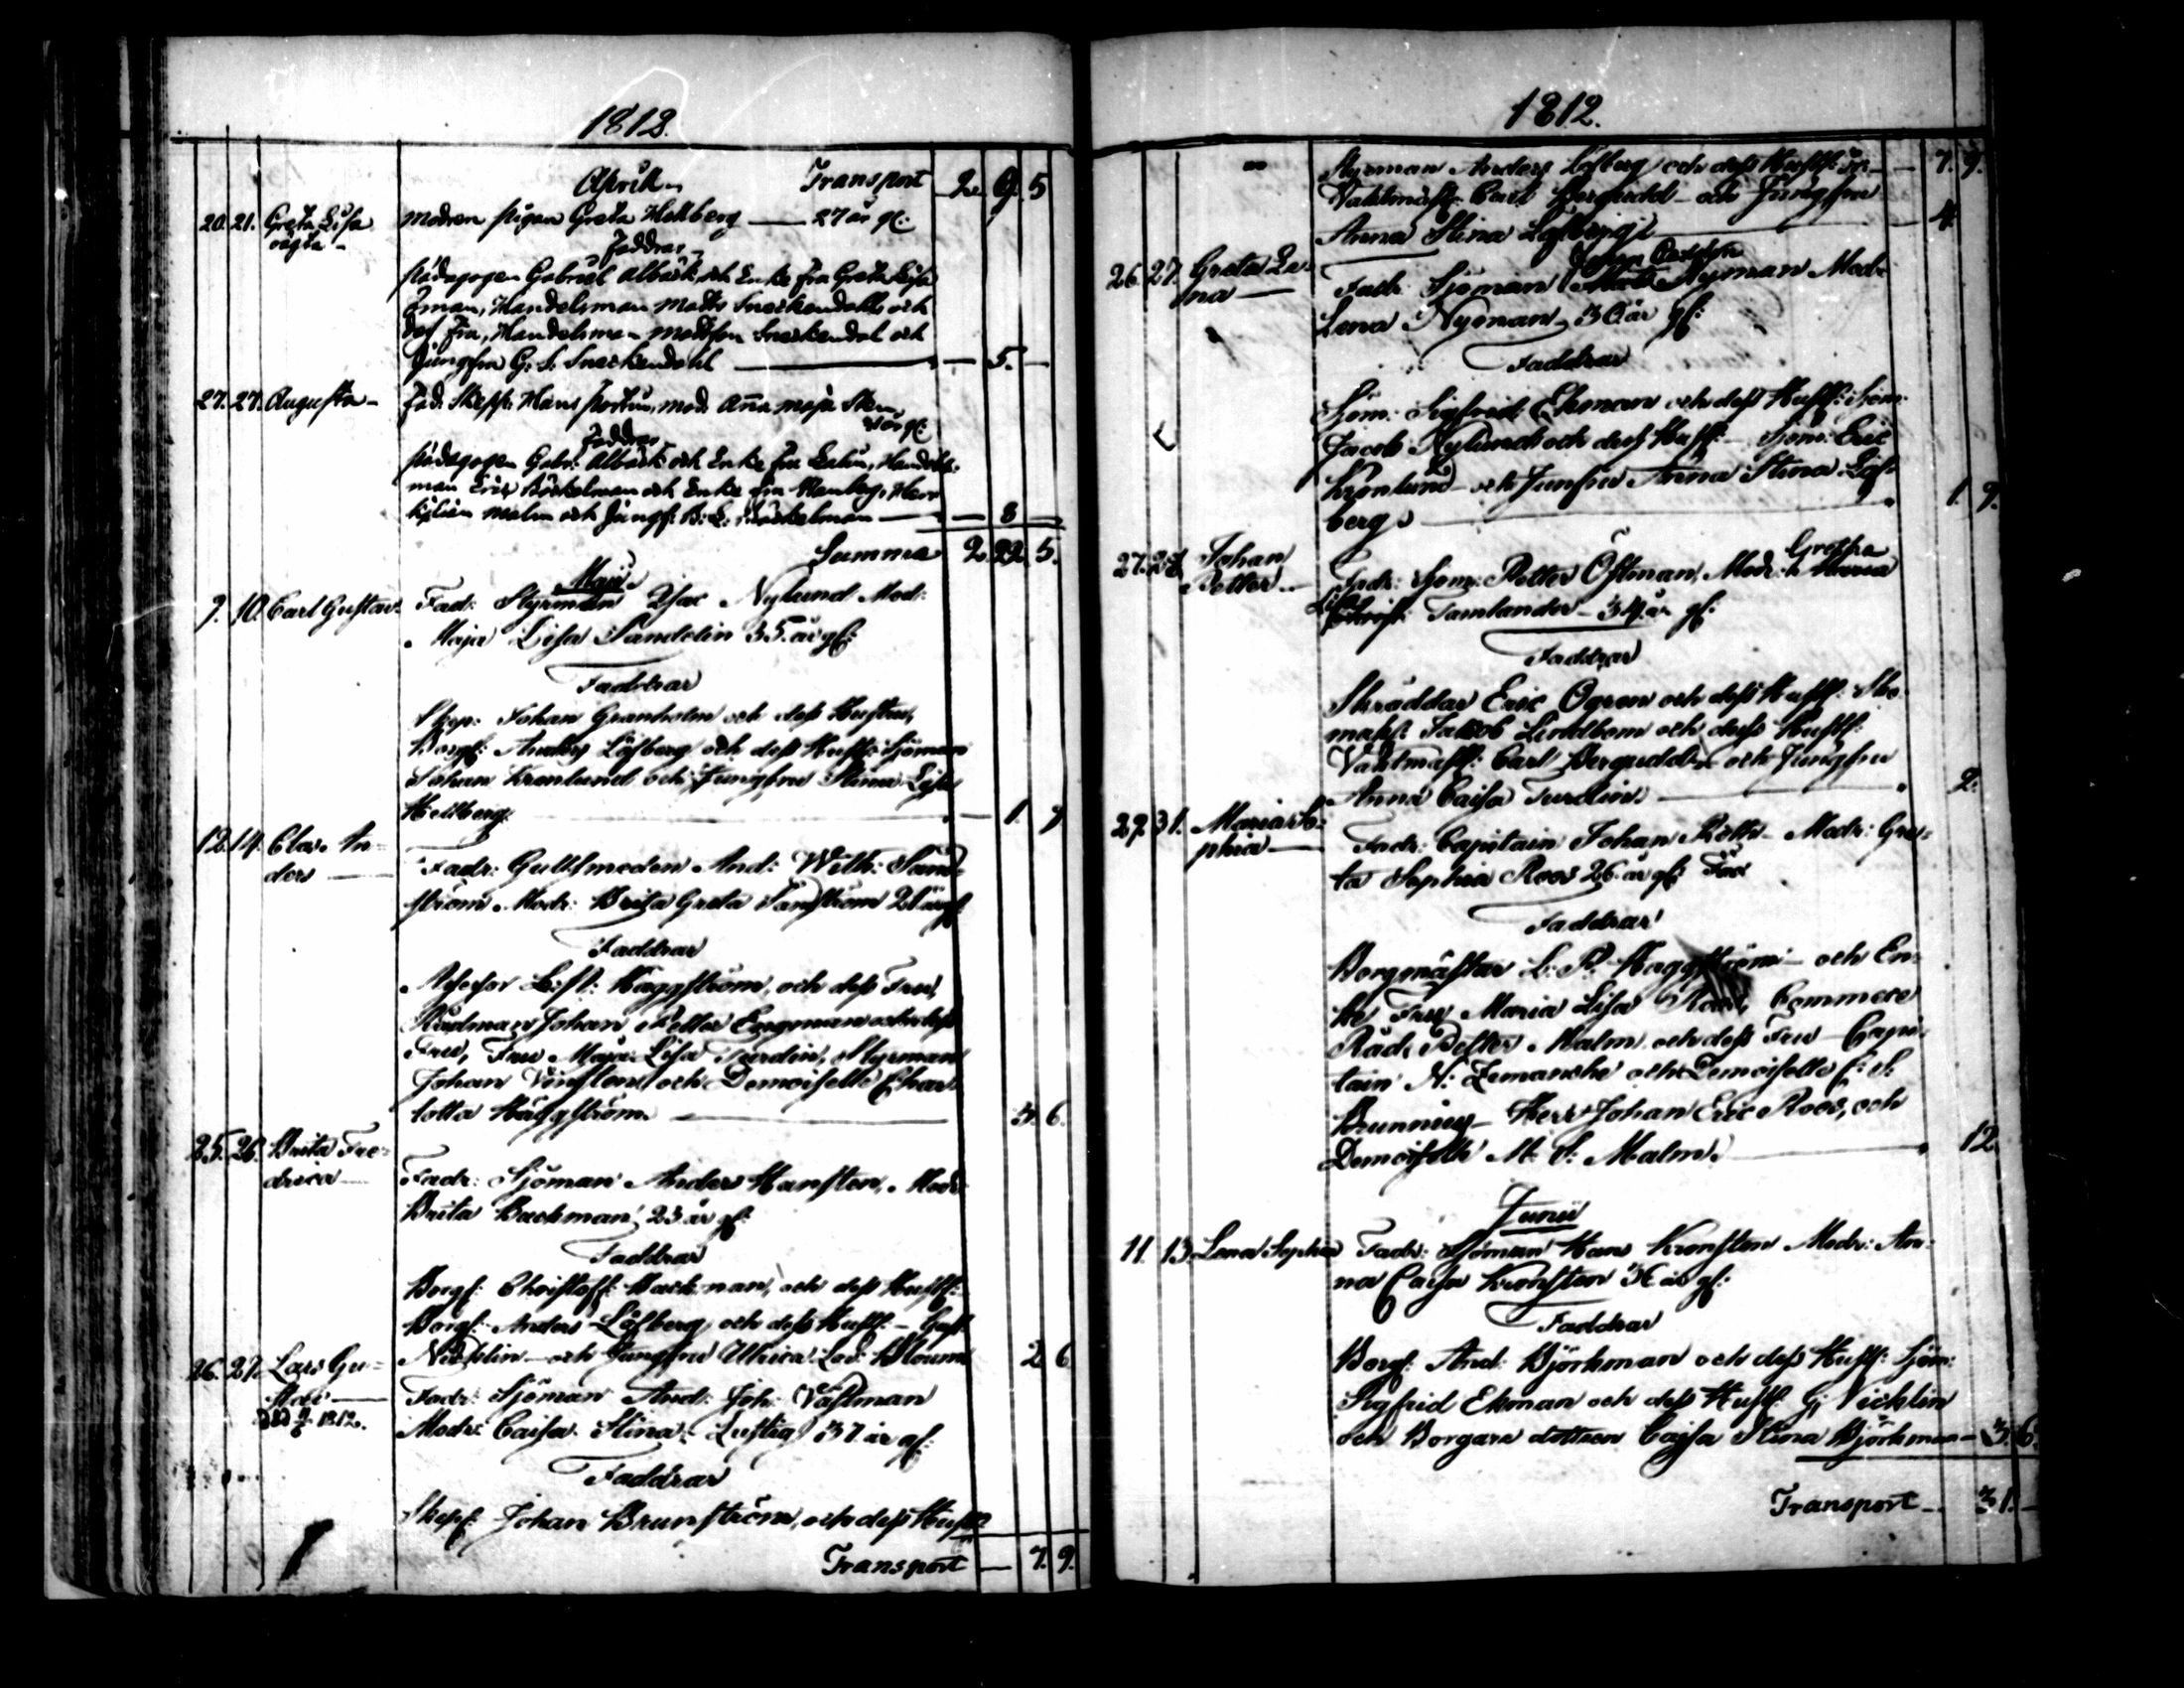 1812.
Aprill. Transport 2. 9. 5
20. 21. Greta Lisa oägta - Modren pigan Greta Hellberg — 27 år gl:
Faddrar
Pädagogen Gabriel Albäck och Enke Fru Greta Lisa
Handelsman Matts Sneckendahl och
dess Fru, Handelsman Sneckendal och
Jungfru G. S. Sneckendahl — 5. —
27. 27. Augusta - Fad. Skepp. Hans mod. Anna Maja
år gl:
Faddrar
Pädagogen Gabr: Albäck och Enke Fru Handels-
man Eric Böckelman och Enke Fru Herr
Malm och Jungf: B: L: Böckelman — 8 —
Summa 2. 22. 5.
Maji.
9. 10. Carl Gustav. Fadr: Styrman Isac Nylund Modr:
Maja Lisa Sandelin 35. år gl:
Faddrar
Skep: Johan Granholm och dess Hustru,
Borgf: Anders Löfberg och dess Hustr: Sjöman
Johan Kronlund och Jungfru Stina Lisa
Hellberg. — 1. 9
12. 14. Clas An-
ders — Fadr: Gullsmeden And: Wilh: Sand-
ström Modr: Brita Greta Sandström 28 år gl
Faddrar
Assessor L: P: Häggström, och dess Fru,
Rådman Johan Petter Engman och dess
Fru, Fru Maja Lisa Turdin, Styrman
Johan och Demoiselle Char-
lotta Häggström — 3. 6.
25. 26. Brita Fre-
drica — Fadr: Sjöman Anders Hansten, Modr
Brita Backman 23 år gl:
Faddrar
Borgf: Christoff: Backman, och dess Hustr:
Borgf: Anders Löfberg och dess Hustr: - Gust
Nicklin - och Jungfru Ulrica Blom 2 6
26. 27. Lars Gu-
stav — Fadr: Sjöman And: Joh: Västman
Död 1812. Modr: Caisa Stina Lustig 37 år gl:
Faddrar
Skepp Johan Brunström, och dess Hustr
Transport — 7. 9.
1812.
Styrman Anders Löfberg och dess Hustr: — 7. 9.
Vaktmäst: Carl Bergudd - och Jungfru
Anna Stina Löfberg — 4
26. 27. Greta Le-
na — Fadr: Sjöman Nyman Modr
Lena Nyman, 30 år gl:
Faddrar
Sjöm: Sigfrid Ekman och dess Hustr: Sjöm:
Jacob Nylund och dess Hustr: Sjöm: Eric
Kronlund och Junfru Anna Stina Löf-
berg. — 1 9.
27. 28 Johan
Petter - Fadr: Sjöm: Petter Östman, Modr: Gretha
Lisa Tamlander - 34 år gl:
Faddrar
Skräddar Eric Ögren och dess Hustr: Sko-
mak: Jakob Lindbom och dess Hustr:
Vaktmäst: Carl Bergudd och Jungfru
Anna Caisa Turdin. — 2.
29. 31. Maria So-
phia — Fadr: Capitain Johan Modr: Gre-
ta Sophia Roos 26 år gl:
Faddrar
Borgmästar L: P: Häggström - och En-
ke Fru Maria Lisa Roos, Commerce
Råd: Petter Malm och dess Fru Capi-
tain N: och Demoiselle C: S:
Brunnius - Herr Johan Eric Roos, och
Demoiselle M: S: Malm. — 12
Junii
11. 13. Lena Sophia Fadr: Sjöman Hans Kronsten Modr: An-
na Caisa Kronsten 36 år gl:
Faddrar
Borgf: And: Björkman och dess Hustr: Sjöm:
Sigfrid Ekman och dess Hustr G: Nicklin
och Borgare dottren Caisa Stina Björkman - 3. 6.
Transport - 31. -